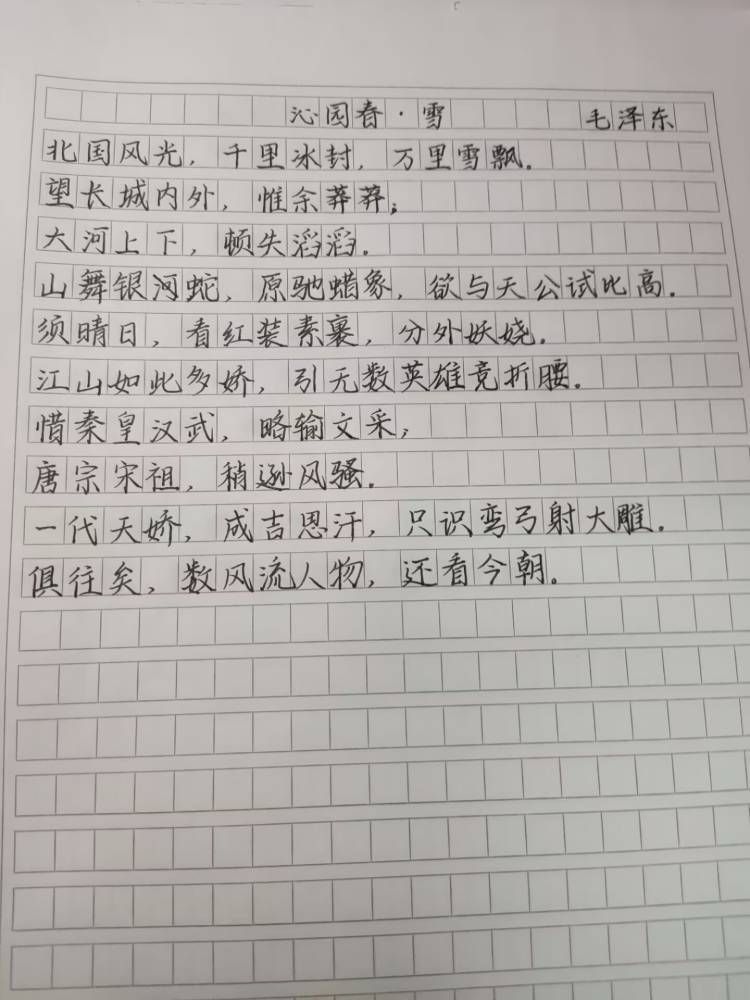 沁园春·雪 毛泽东
北国风光，千里冰封，万里雪飘.
望长城内外，惟余莽莽；
大河上下，顿失滔滔.
山舞银河蛇，原驰蜡象，欲与天公试比高.
须晴日，看红装素裹，分外妖娆.
江山如此多娇，引无数英雄竞折腰.
惜秦皇汉武，略输文采；
唐宗宋祖，稍逊风骚.
一代天娇，成吉思汗，只识弯弓射大雕.
俱往矣，数风流人物，还看今朝.